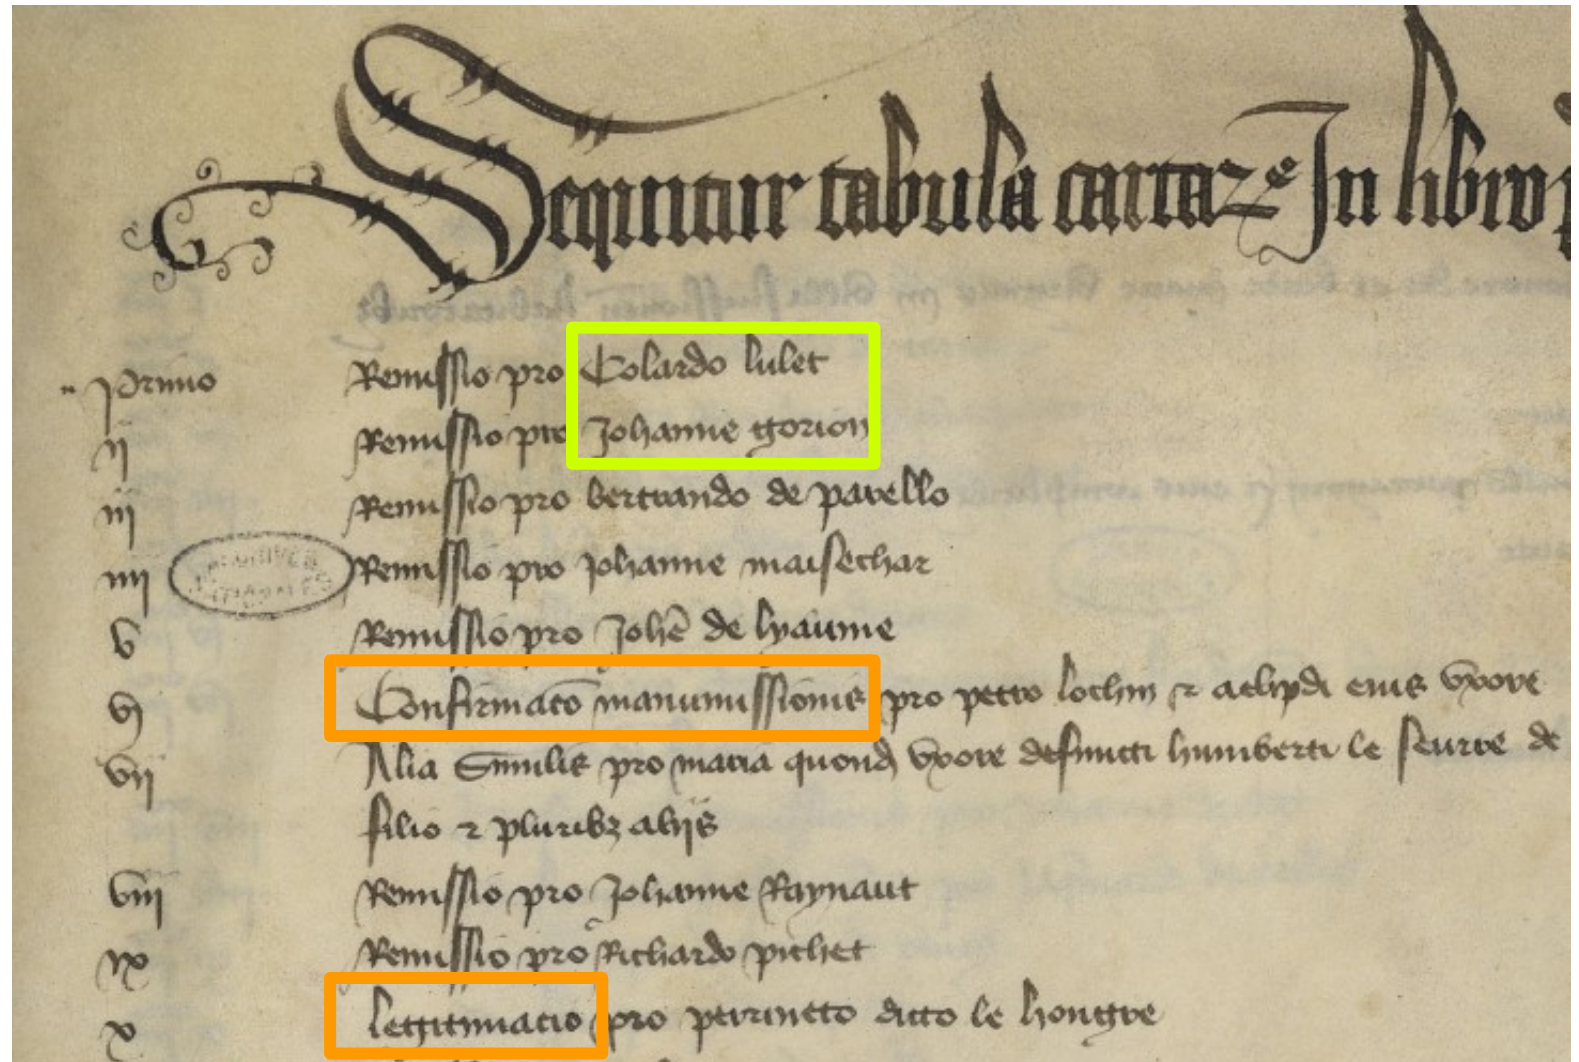 Sequntur tabula cartaꝝ In libro
Primo Remissio pro Colardo lulet
ij Remissio pro Johanne gorion
iij Remissio pro bertrando de parello
iiij Remissio pro Johanne maisechar
ARCHIVES NATIONALES
v Remissio pro Johe de lyaume
vj Confirmaco manumissionis pro petro lochin ⁊ aelipdi eius vxore
vij Alia Similis pro maria quond vxore defuncti humberti le seurre de
filio ⁊ pluribꝫ alijs
viij Remissio pro Johanne Raynaut
ix Remissio pro Richardo pichet
x legitimacio pro perrineto dicto le hongre